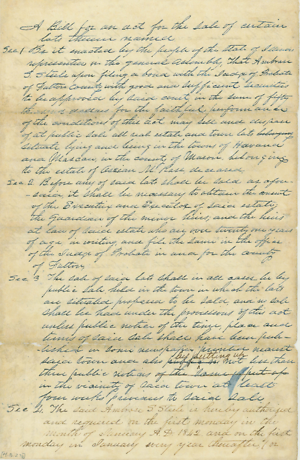 A Bill for an act for the sale of certain
lots therein named
Sec 1 Be it enacted by the people of the State of Illinois
represented in the general Assembly, That Ambrose
S. Steele upon filing a bond with the Judge of Probate
of Fulton County with good and sufficient securities
to be approved by said court, in the sum of fifty
thousand dollars for the faithful performance
of the conditions of this act may sell and dispose
of at public sale all real estate and town lots belonging
situate lying and being in the towns of Havanna
and in the county of Mason belonging
to the estate of Ossian M. Ross deceased
Sec. 2 Before any of said lots shall be sold as afore-
said, it shall be necessary to obtain the consent
of the Executrix and Executor of said estate,
the Guardian of the minor heirs, and the heirs
at law of said estate who are over twenty one years
of age in writing and file the same in the office
of the Judge of Probate in and for the county
of Fulton
Sec 3 The sale of said lots shall in all cases be by
public sale held in the town in which the lots
are situated proposed to be sold and no sale
shall be had under the provisions of this act
unless public notice of the time, place and
terms of said sale shall have been pub-
lished in some newspaper printed nearest
said town and also by putting up
three public notices of the same put up
in the vicinity of said town at least
four weeks previous to said sale
Sec 4. The said Ambrose S. Steele is hereby authorized
and required on the first monday in the
month of January A.D. 1842 and on the first
monday in January every year thereafter, or